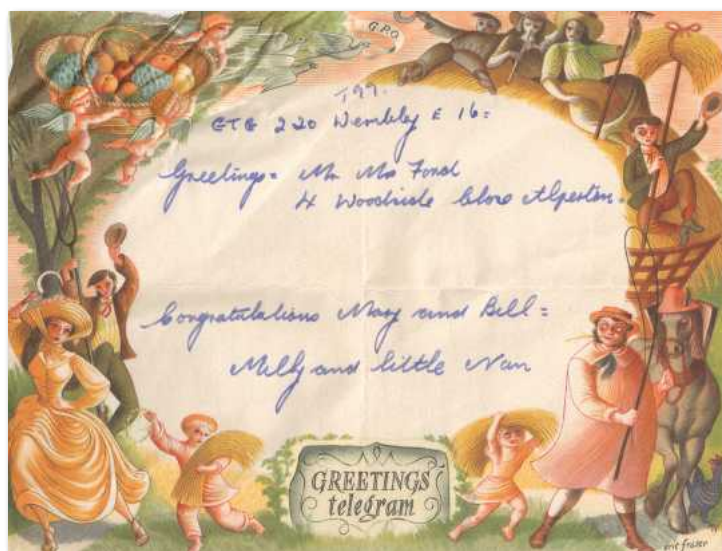 G.P.O.
T97.
GTG 220 Wembley E 16=
Greetings= Mr Mrs Ford
4 Woodside Close Alperton.
Congratulations Mary and Bill=
Milly and little Nan
GREETINGS
telegram
eric fraser